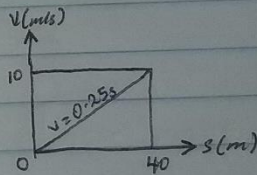 V(m/s)
10
v=0.25s
0
40
S(m)